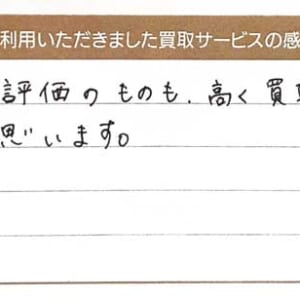 利用いただきました買取サービスの感
評価のものも、高く買
思います。